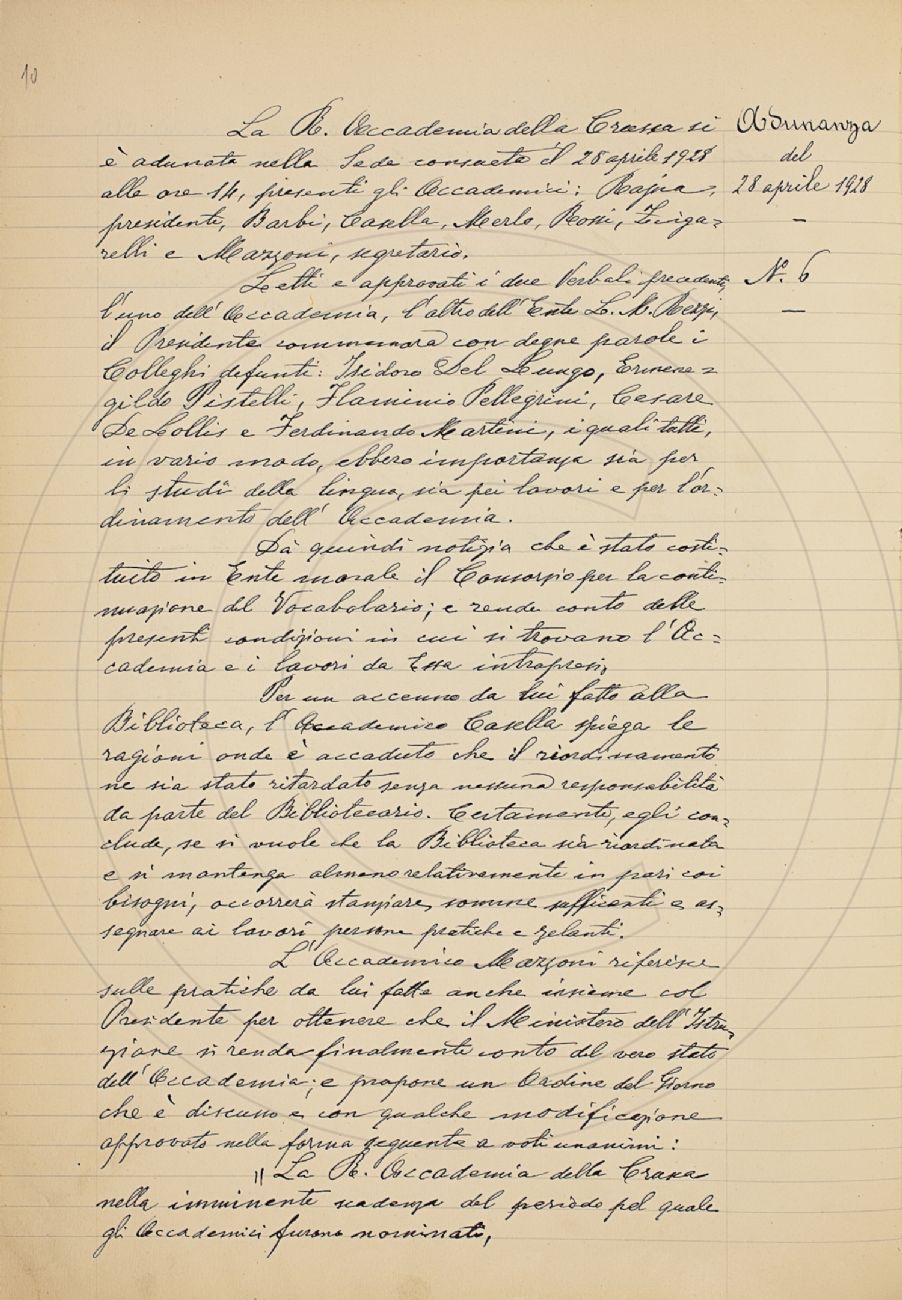 10
La R. Accademia della Crusca si
è adunata nella Sede consueta il 28 aprile 1928
alle ore 14, presenti gli Accademici: Rajna,
presidente, Barbi, Casella, Merlo, Rossi, Zinga=
relli e Mazzoni, segretario.
Adunanza
del
28 aprile 1928
—
N. 6
—
Letti e approvati i due Verbali precedenti,
l'uno dell'Accademia, l'altro dell'Ente L. M. Rezzi,
il Presidente commemora con degne parole i
Colleghi defunti: Isidoro Del Lungo, Ermene=
gildo Pistelli, Flaminio Pellegrini, Cesare
De Lollis e Ferdinando Martini, i quali tutti,
in vario modo, ebbero importanza sia per
li studî della lingua, sia pei lavori e per l'or=
dinamento dell'Accademia.
Dà quindi notizia che è stato costi=
tuito in Ente morale il Consorzio per la conti=
nuazione del Vocabolario; e rende conto delle
presenti condizioni in cui si trovano l'Ac=
cademia e i lavori da Essa intrapresi.
Per un accenno da lui fatto alla
Biblioteca, l'Accademico Casella spiega le
ragioni onde è accaduto che il riordinamento
ne sia stato ritardato senza nessuna responsabilità
da parte del Bibliotecario. Certamente, egli con=
clude, se si vuole che la Biblioteca sia riordinata
e si mantenga almeno relativamente in pari coi
bisogni, occorrerà stanziare somme sufficenti e as=
segnare ai lavori persone pratiche e zelanti.
L'Accademico Mazzoni riferisce
sulle pratiche da lui fatte anche insieme col
Presidente per ottenere che il Ministero dell'Istru=
zione si renda finalmente conto del vero stato
dell'Accademia; e propone un Ordine del Giorno
che è discusso e con qualche modificazione
approvato nella forma seguente a voti unanimi:
"La R. Accademia della Crusca
nella imminente scadenza del periodo pel quale
gli Accademici furono nominati,